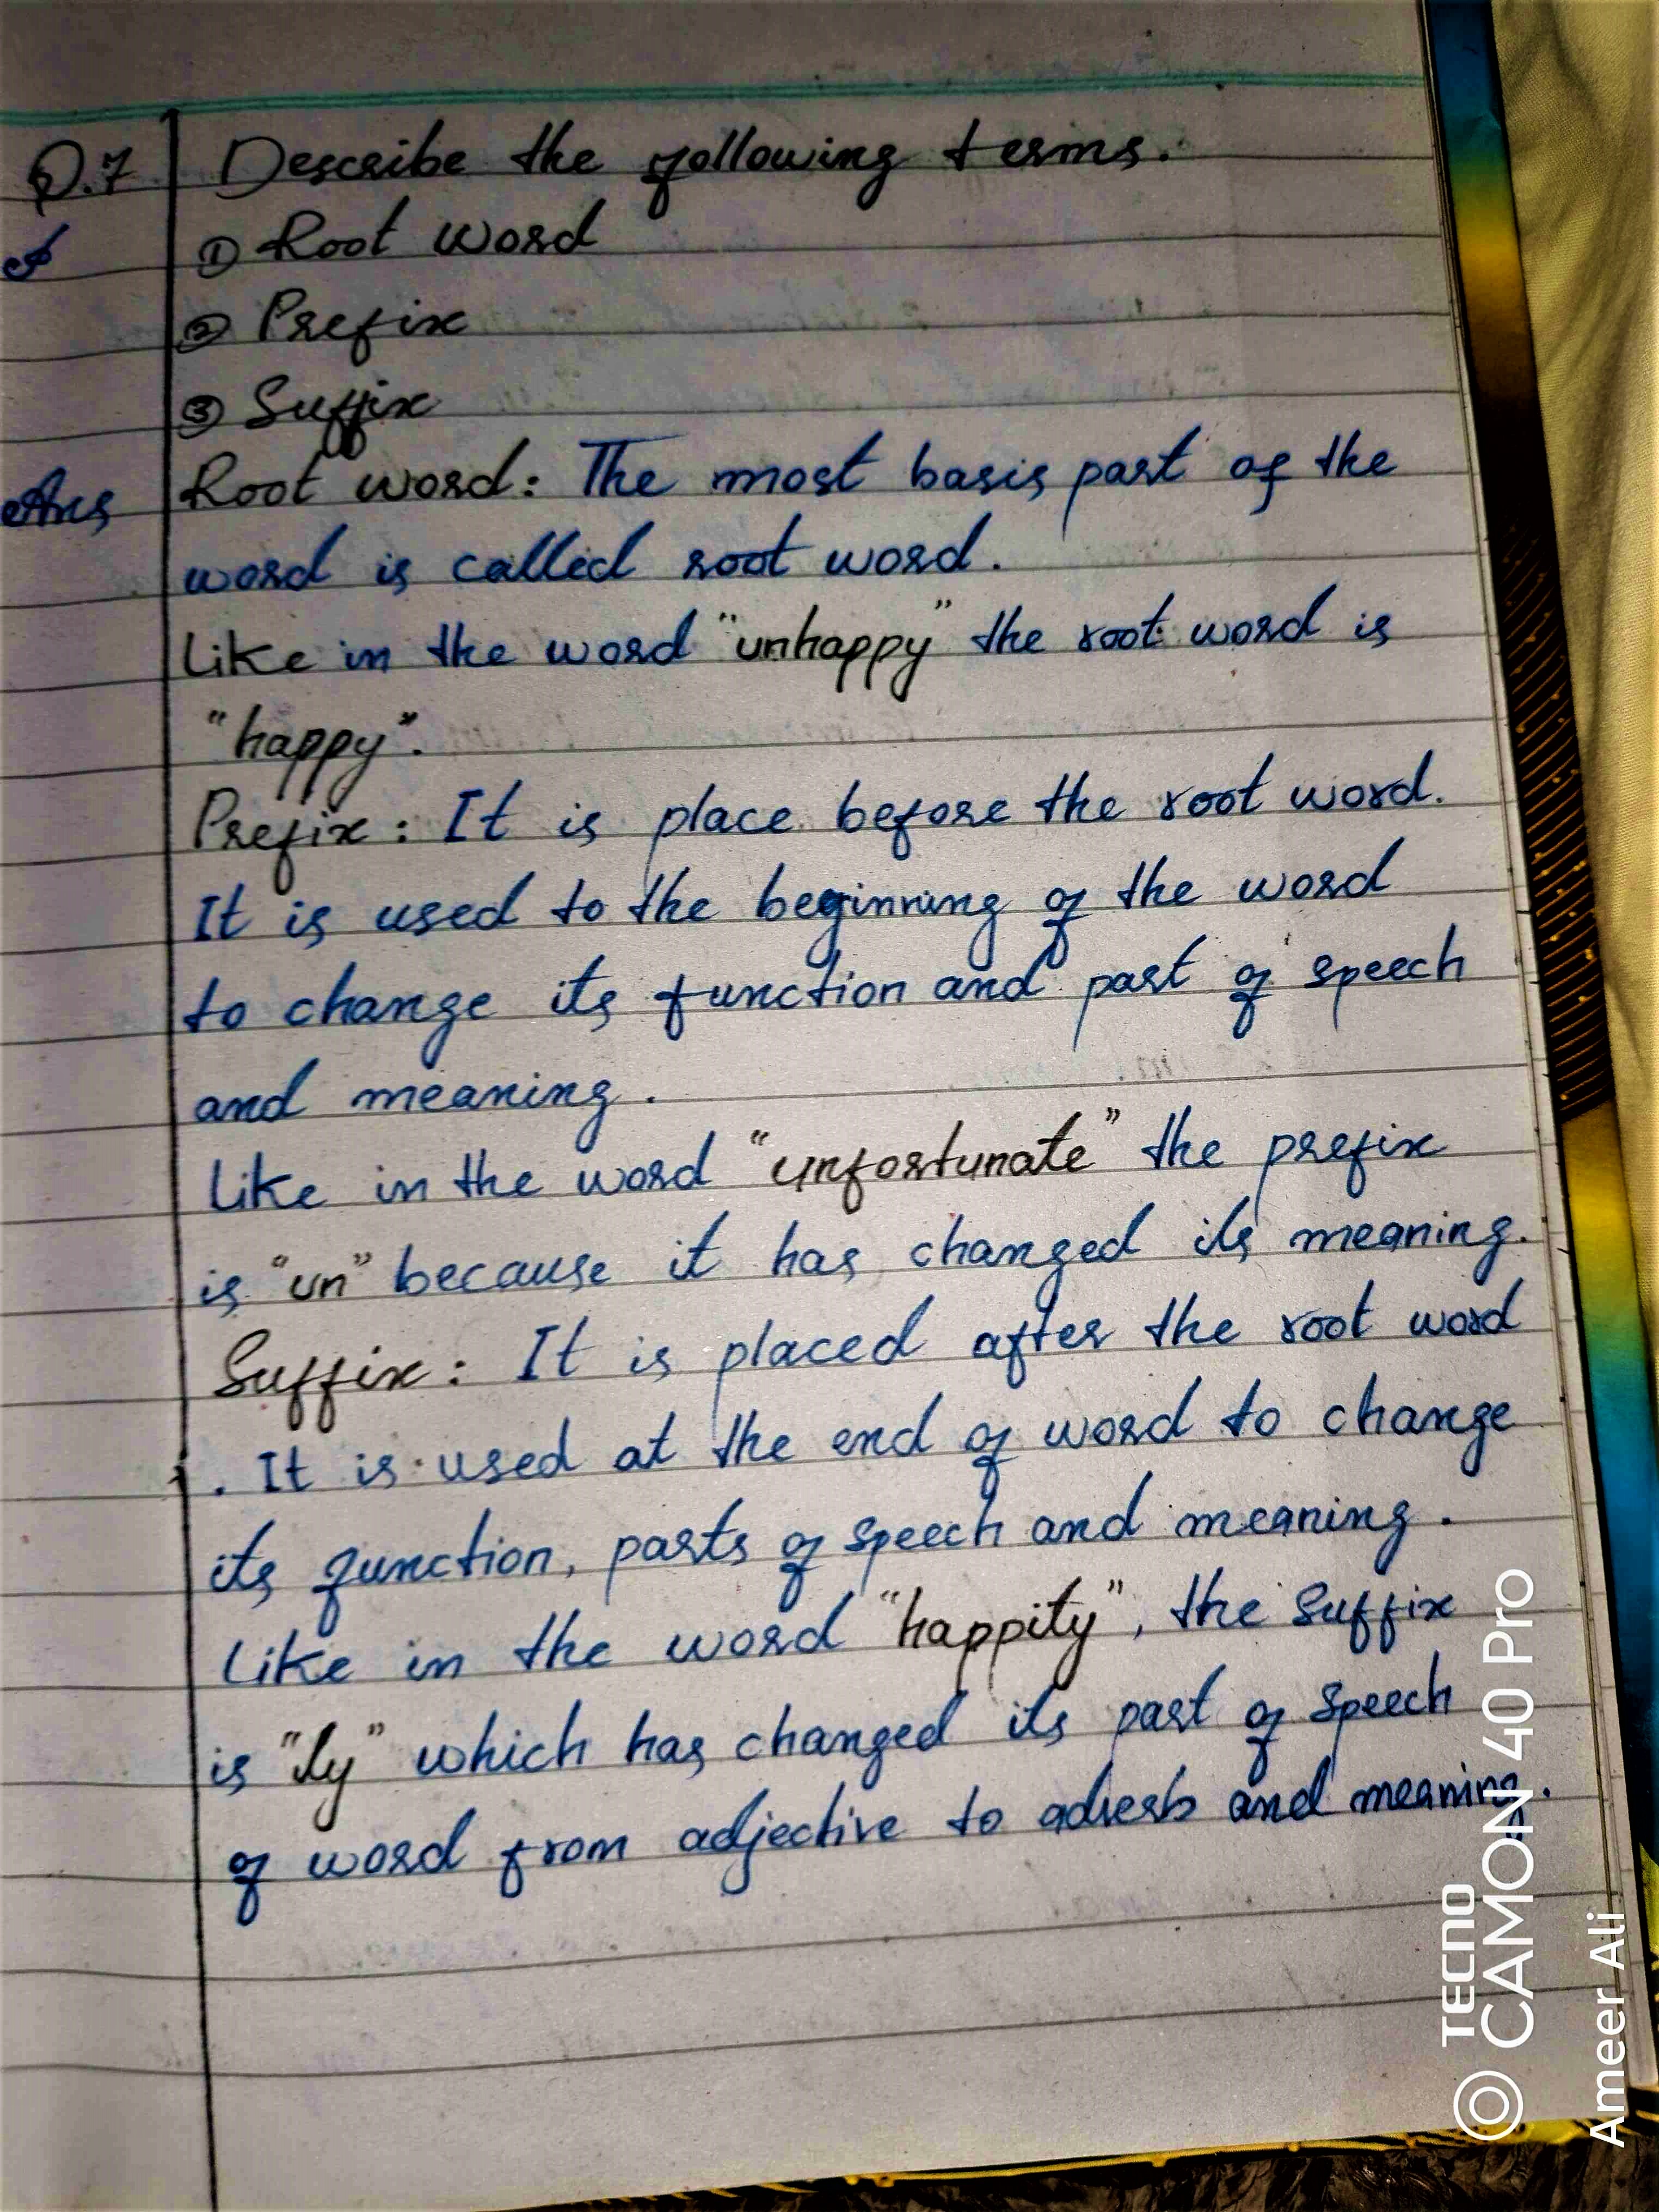 Q.7 Describe the following terms.
① Root word
② Prefix
③ Suffix
Ans Root word: The most basis part of the
word is called root word.
Like in the word "unhappy" the root word is
"happy".
Prefix: It is place before the root word.
It is used to the beginning of the word
to change its function and part of speech
and meaning.
Like in the word "unfortunate" the prefix
is "un" because it has changed its meaning.
Suffix: It is placed after the root word
. It is used at the end of word to change
its function, parts of speech and meaning.
Like in the word "happity", the suffix
is "ly" which has changed its part of speech
of word from adjective to adverb and meaning.
TECNO
CAMON 40 Pro
Ameer Ali